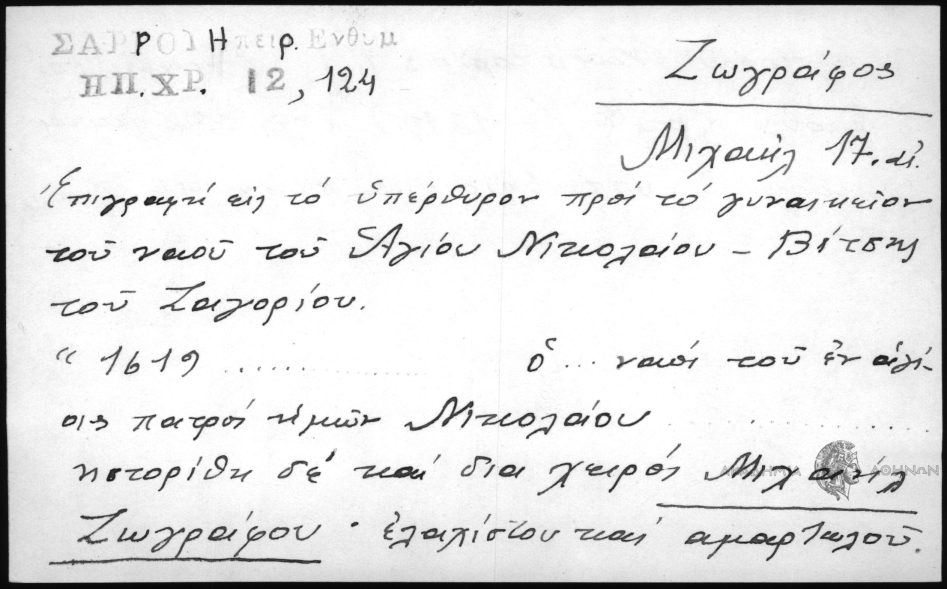 ΣΑΡΡΟΥ Ηπειρ. Ενθυμ
ΗΠ. ΧΡ. 12, 124
Ζωγράφος
Μιχαήλ 17. αἰ.
Ἐπιγραφή εἰς τό ὑπέρθυρον πρός τό γυναικεῖον
τοῦ ναοῦ τοῦ Ἁγίου Νικολάου – Βίτσης
τοῦ Ζαγορίου.
“ 1619 .......... ὁ ... ναός τοῦ ἐν ἁγί-
οις πατρός ἡμῶν Νικολάου ..........
ηστορίθη δέ καί δια χειρός Μιχαήλ
Ζωγράφου · ἐλαχίστου καί αμαρτωλοῦ.
ΑΚΑΔΗΜΙΑ ΑΘΗΝΩΝ